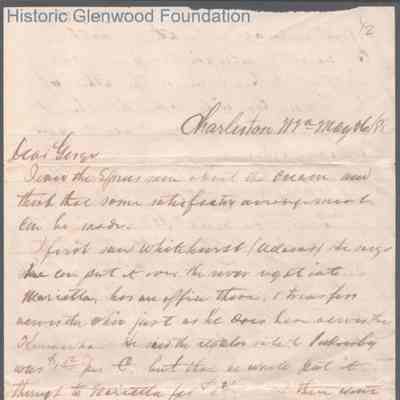 Historic Glenwood Foundation
1/2
Charleston W Va May 16/8
Dear George
I saw the Express men about the and
think that some satisfactory arrangement
can be made.
I first saw Whitehurst (Adams) he says
he can put it over the river right into
Marietta, has an office there, & transfers
across the Ohio just as he does here across the
Kanawha. He said the regular rate to
was per C. but that he would put it
through to Marietta for